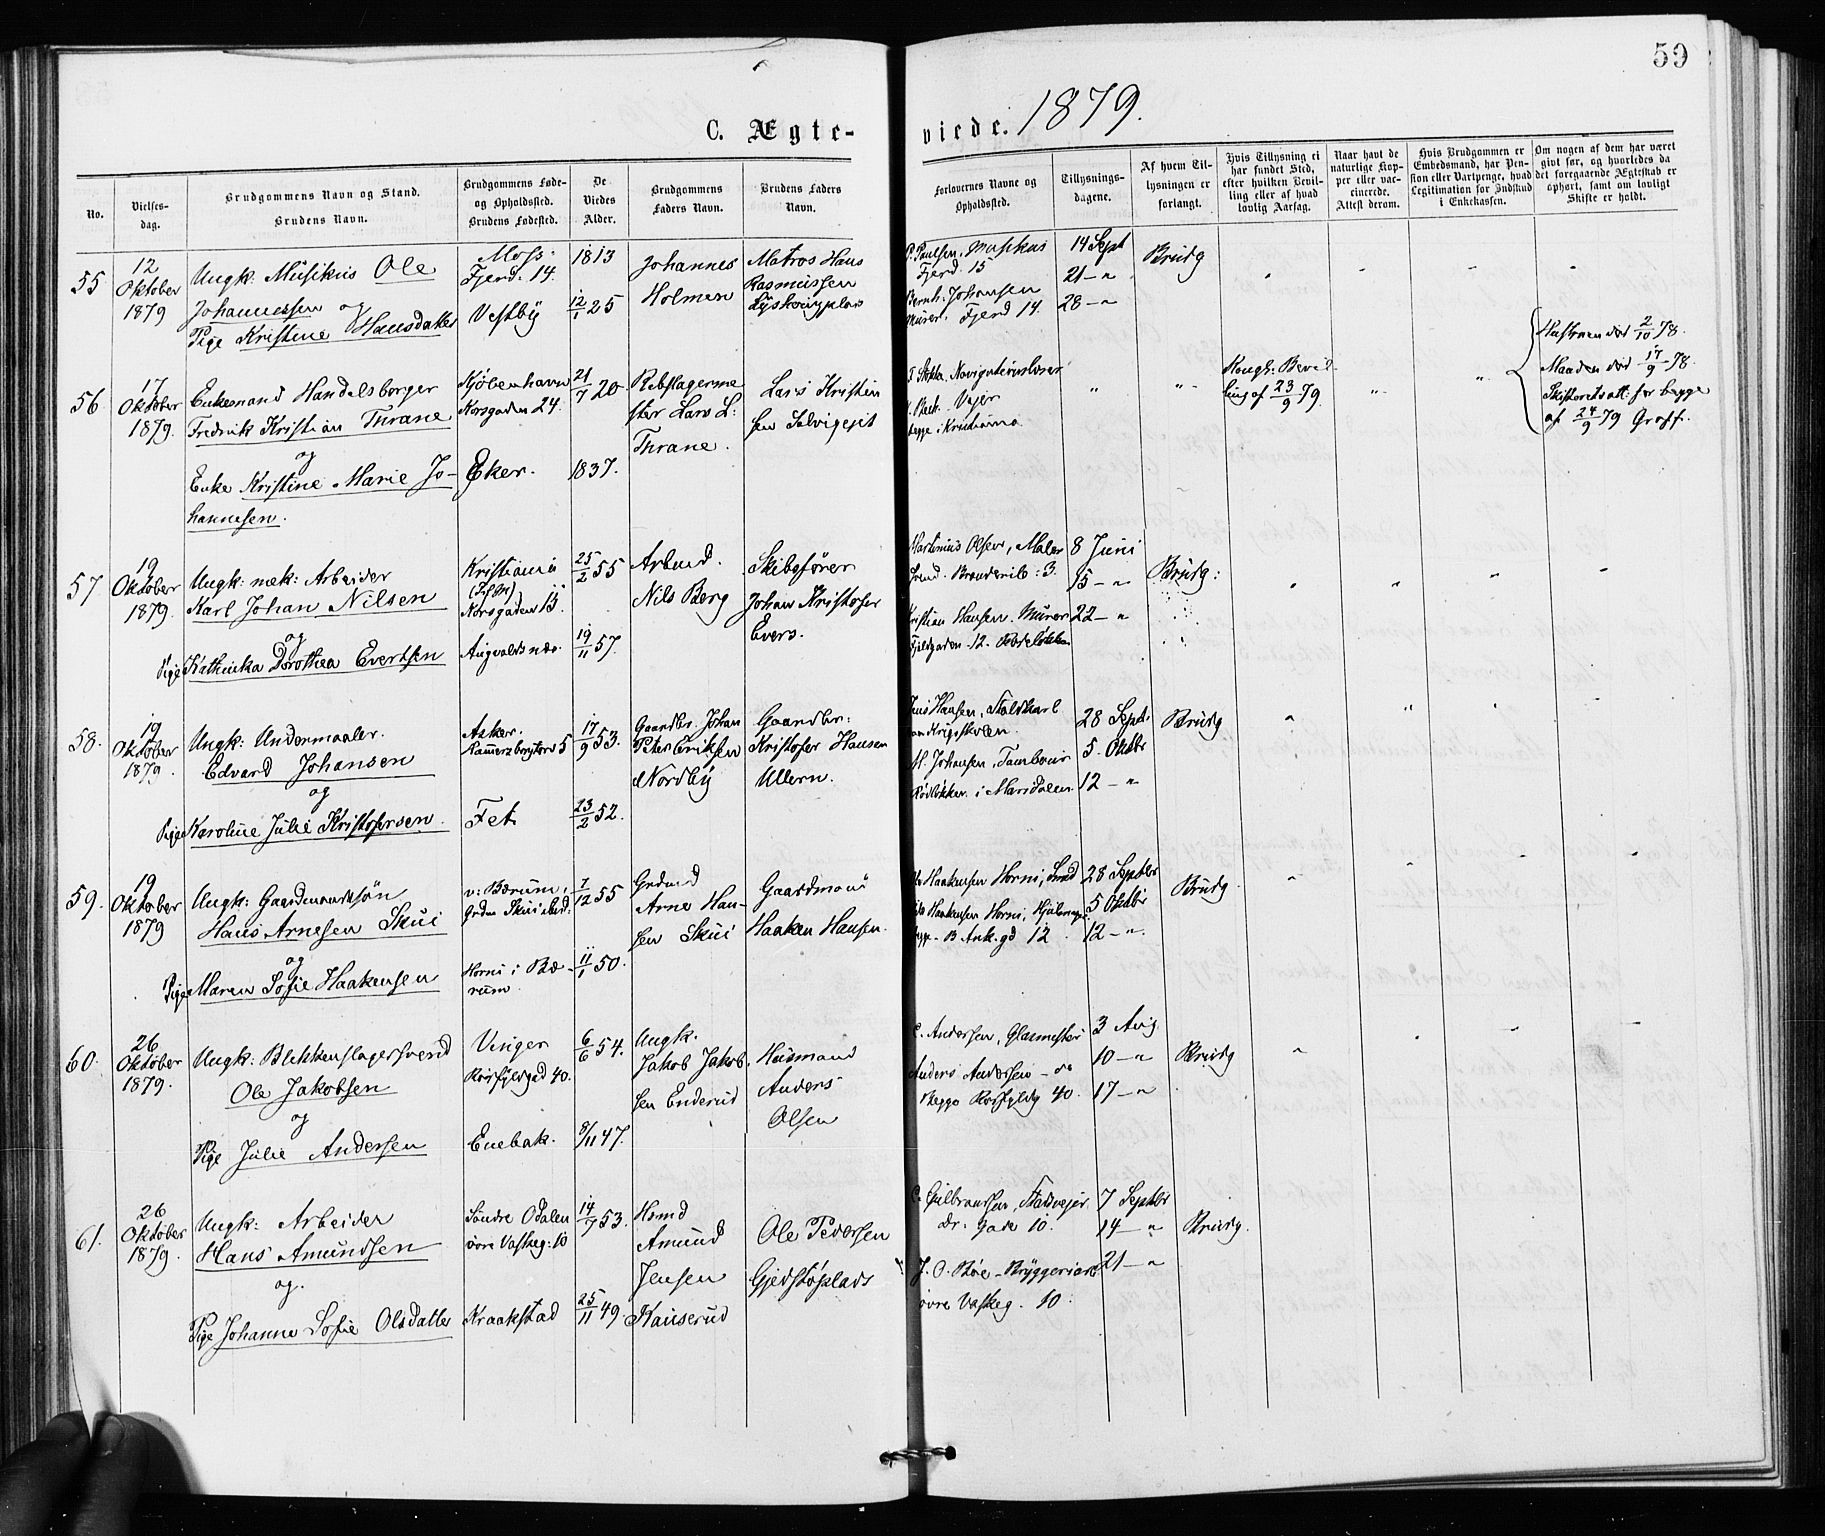 59
C. Ægte-
viede. 1879.
No.
Vielses-
dag.
Brudgommens Navn og Stand.
Brudens Navn.
Brudgommens Føde-
og Opholdssted.
Brudens Fødested.
De
Viedes
Alder.
Brudgommens
Faders Navn.
Brudens Faders
Navn.
Forlovernes Navne og
Opholdssted.
Tillysnings-
dagene.
Af hvem Til-
lysningen er
forlangt.
Hvis Tillysning ei
har fundet Sted,
efter hvilken Bevil-
ling eller af hvad
lovlig Aarsag.
Naar havt de
naturlige Kop-
per eller vac-
cinerede.
Attest derom.
Hvis Brudgommen er
Embedsmand, har Pen-
sion eller Vartpenge, hvad
Legitimation for Indskud
i Enkekassen.
Om nogen af dem har været
givt før, og hvorledes da
det foregaaende Ægteskab er
ophørt, samt om lovligt
Skifte er holdt.
55
12
Oktober
1879
Ungk: Musikus Ole
Johannessen og
Pige Kristine Hansdatter
Moss.
Fjerd. 14.
Vestby
1813
12/1 25
Johannes
Holmen
Matros Hans
Rasmussen
P. Paulsen, Musikus
Fjerd. 15
Bernh: Johansen
Murer. Fjerd 14.
14 Sept
21 — "
28 — "
Brudg
56
17
Oktober
1879.
Enkemand Handelsborger
Fredrik Kristian Thrane
og
Enke Kristine Marie Jo-
hannesen.
Kjøbenhavn
Korsgaden 24.
Eker.
21/7 20
1837.
Rebslagerme
ster Lars L:
Thrane.
Lars Kristen
sen Solvigejet
Navigationslærer
Vejer
begge i Kristiania
"
"
Kongh: Bevil
ling af 23/9 79.
"
"
Hustruen død 2/10 78.
Manden død 17/9 - 78.
Skifteretsatt: for begge
af 24/9 79
57
19
Oktober
1879.
Ungk: mek: Arbeider
Karl Johan Nilsen
og
Pige Kathinka Dorothea Evertsen
Kristiania
Korsgaden 13.
Augvaldsnæs.
25/2 55
19/11 57.
Arbmd.
Nils Berg
Skibsfører
Johan Kristofer
Evers.
Martinius Olsen, Maler
Svend. Brenneribk: 3.
Kristian Hansen, Murer
Fjeldgaden 12.
8 Juni
15 — "
22 — "
Brudg:
58.
19
Oktober
1879.
Ungk: Undermaaler.
Edvard Johansen
og
Pige Karoline Julie Kristofersen.
Asker.
5
Fet
17/9 53.
23/2 52.
Gaardbr. Johan
Peter Eriksen
Nordby
Gaardbr:
Kristofer Hansen
Ullern.
Hansen, Staldkarl
paa Krigsskolen.
M. Johansen, Tambour
i Maridalen.
28 Sept.
5. Oktbr
12 — "
Brudg
59.
19
Oktober
1879
Ungk: Gaardmandssøn
Hans Arnesen Skui
og
Pige Maren Sofie Haakensen
v: Bærum,
Horni i Bæ
rum.
7/12 55
11/1 50.
Grdmd
Arne Han-
sen Skui
Gaardmand
Haaken Hansen.
Haakensen Horni,
Haakensen Horni,
begge B. Ank. gd 12.
28 Septbr
5 Oktbr
12 — ".
Brudg
60.
26
Oktober
1879.
Ungk: Blikkenslagersvend
Ole Jakobsen
og
Pige Julie Andersen
Vinger
Korsfyldgad 40.
Enebak.
6/6 54.
8/11 47.
Ungk.
Jakob Jakob.
sen Enderud
Husmand
Anders
Olsen
C. Andersen, Glasmester
Anders Andersen - do
Begge Korsfyldg 40.
3 Aug.
10 — "
17 — "
Brudg
61.
26
Oktober
1879.
Ungk: Arbeider
Hans Amundsen
og.
Pige Johanne Sofie Olsdatter
Søndre Odalen
øvre Vaskeg: 10
Kraakstad
14/7 53.
25/11 49
Hsmd
Amund
Jensen
Kauserud
Ole Pedersen
Gjedstøplads
C. Gulbrandsen, Stadsvejer
Dr: Gade 10.
J. O. Bøe - Bryggeriarb
øvre Vaskeg. 10.
7 Septbr
14 — "
21 — "
Brudg.